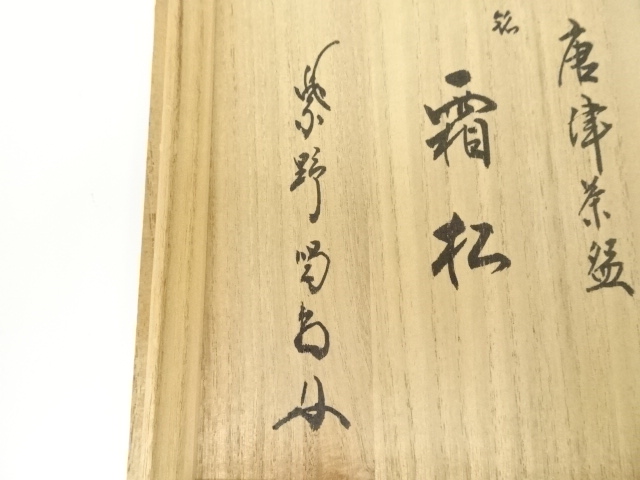 唐津茶盌
銘
霜松
紫野